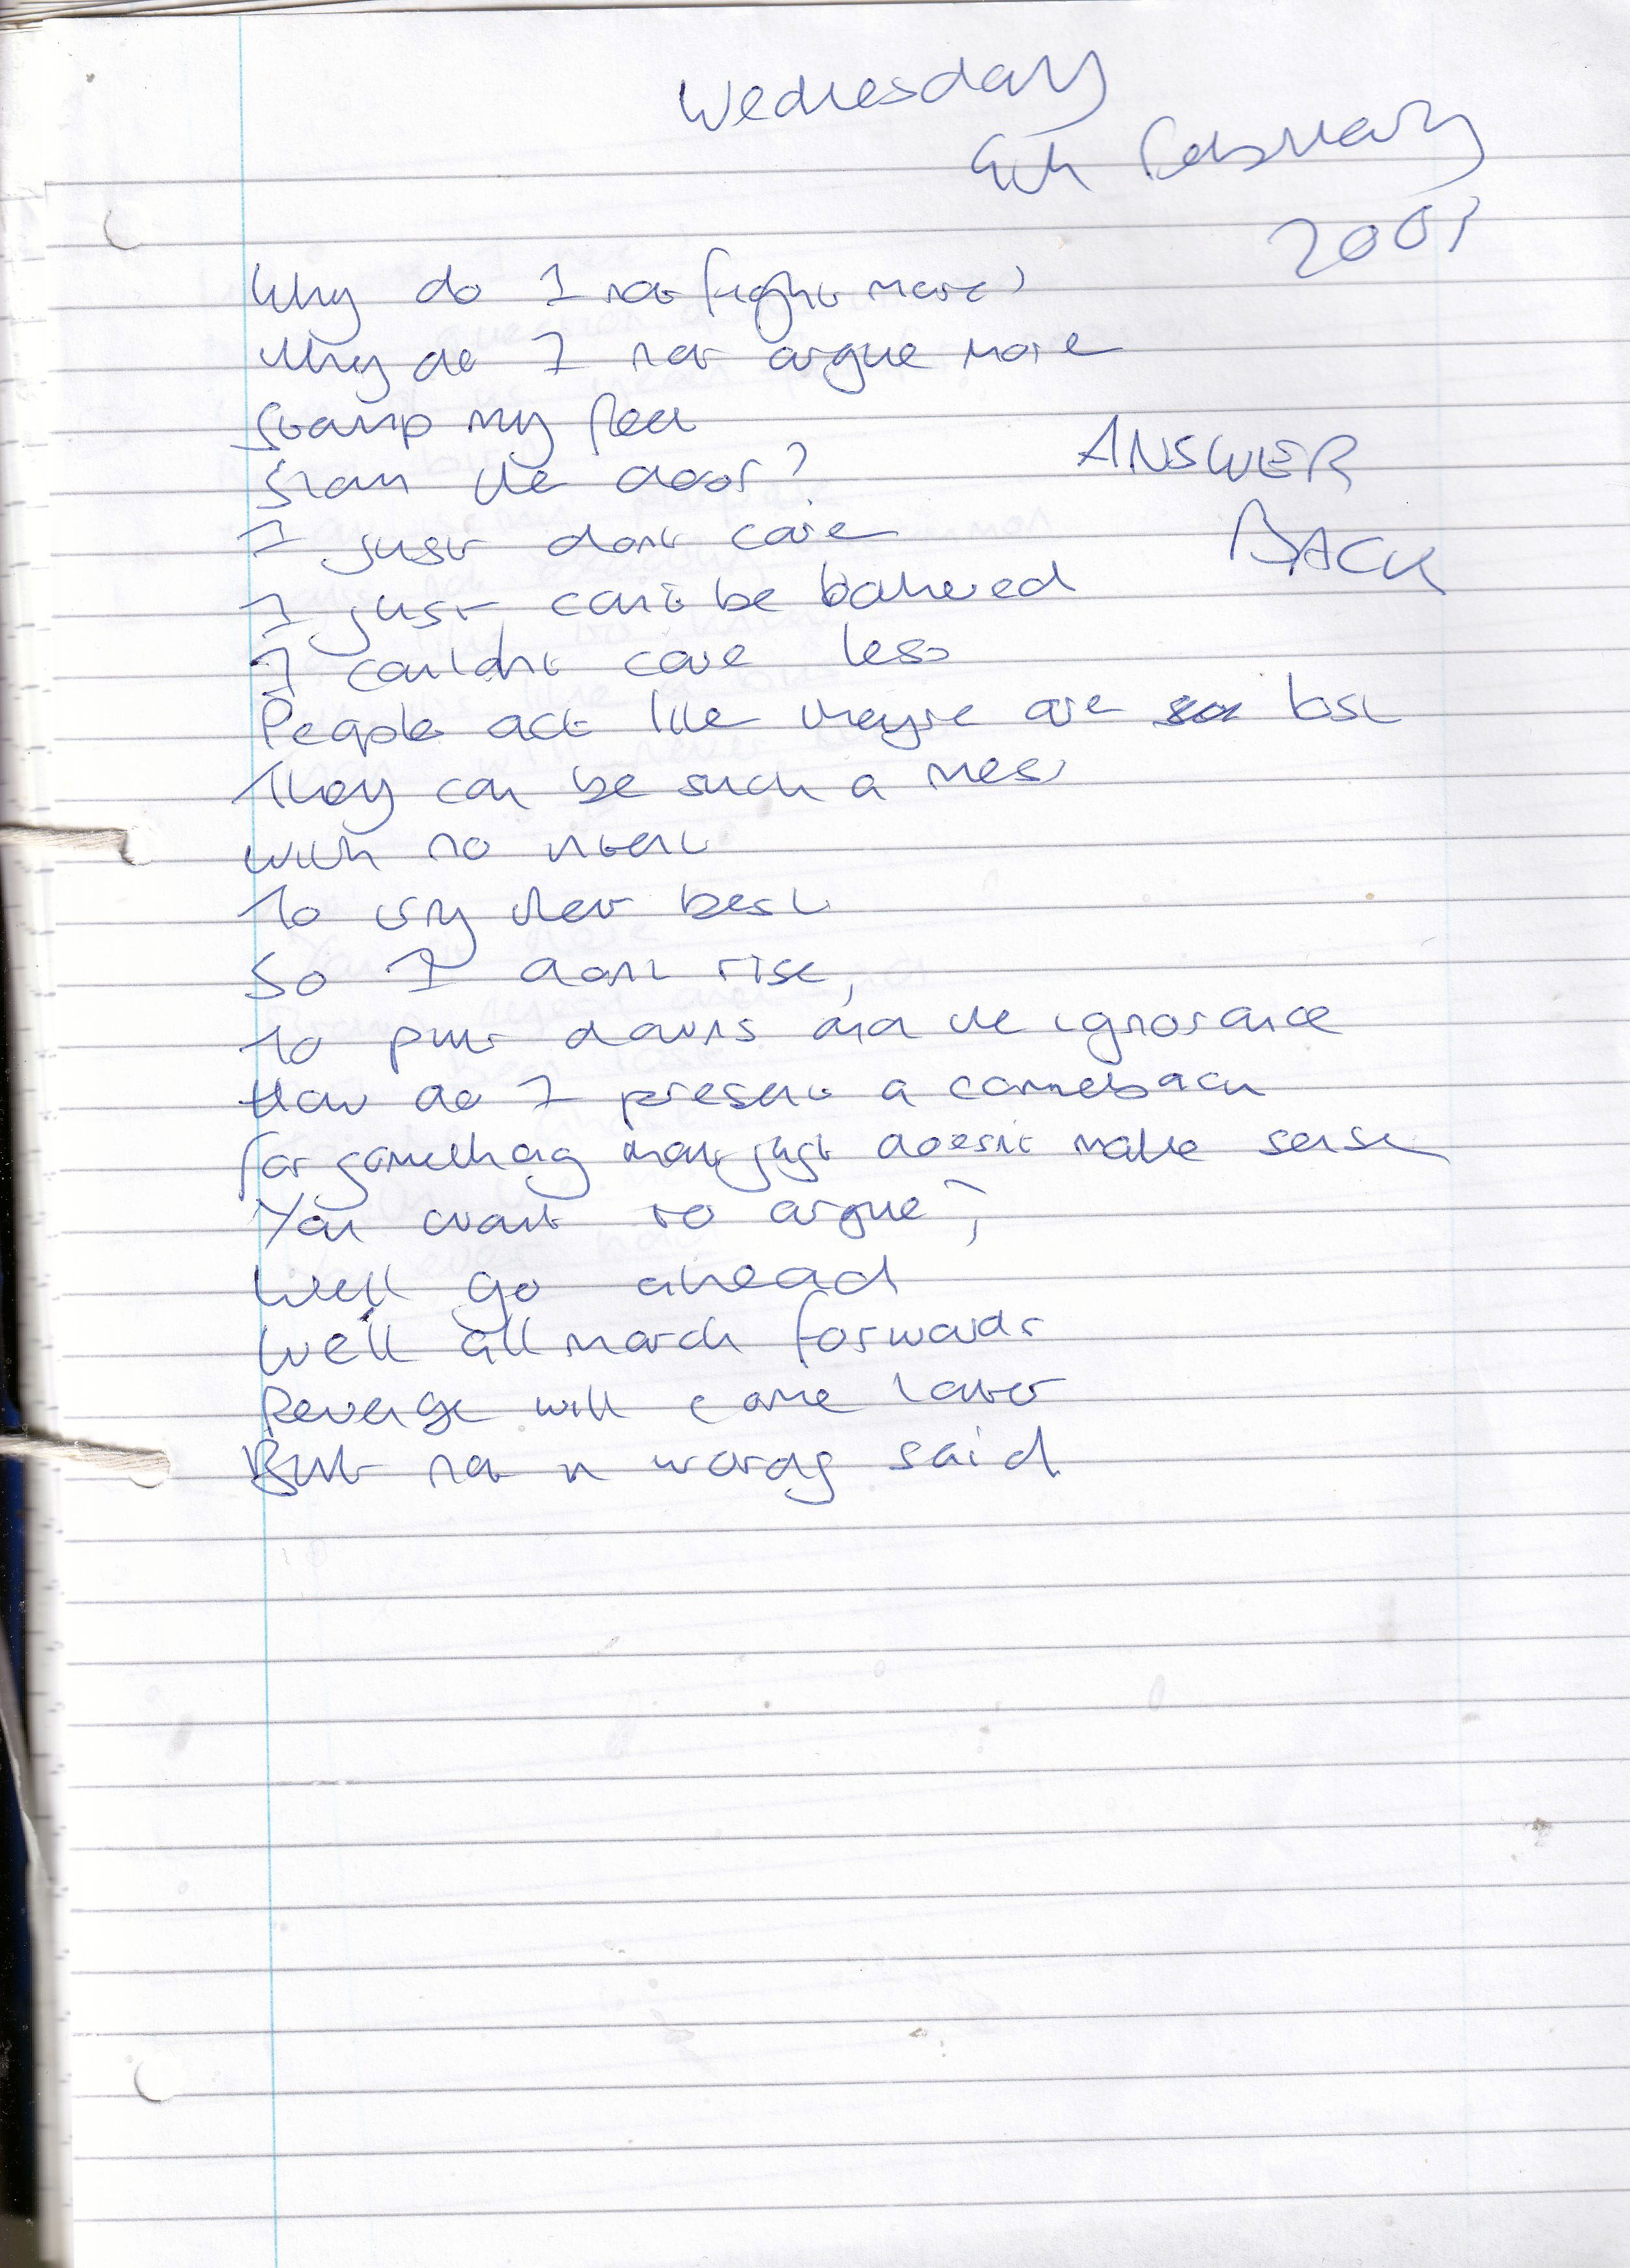 Wednesday
4th February
2009
Why do I not fight more?
Why do I not argue more
Stamp my feet
Slam the door?
ANSWER
BACK
I just dont care
I just can't be bothered
I couldnt care less
People act like theyre are lost
They can be such a mess
with no intent
To try their best
So I dont rise,
To put downs and the ignorance
How do I present a comeback
for something that just doesnt make sense
You want to argue?
Well go ahead
We'll all march forwards
Revenge will come later
But not in words said